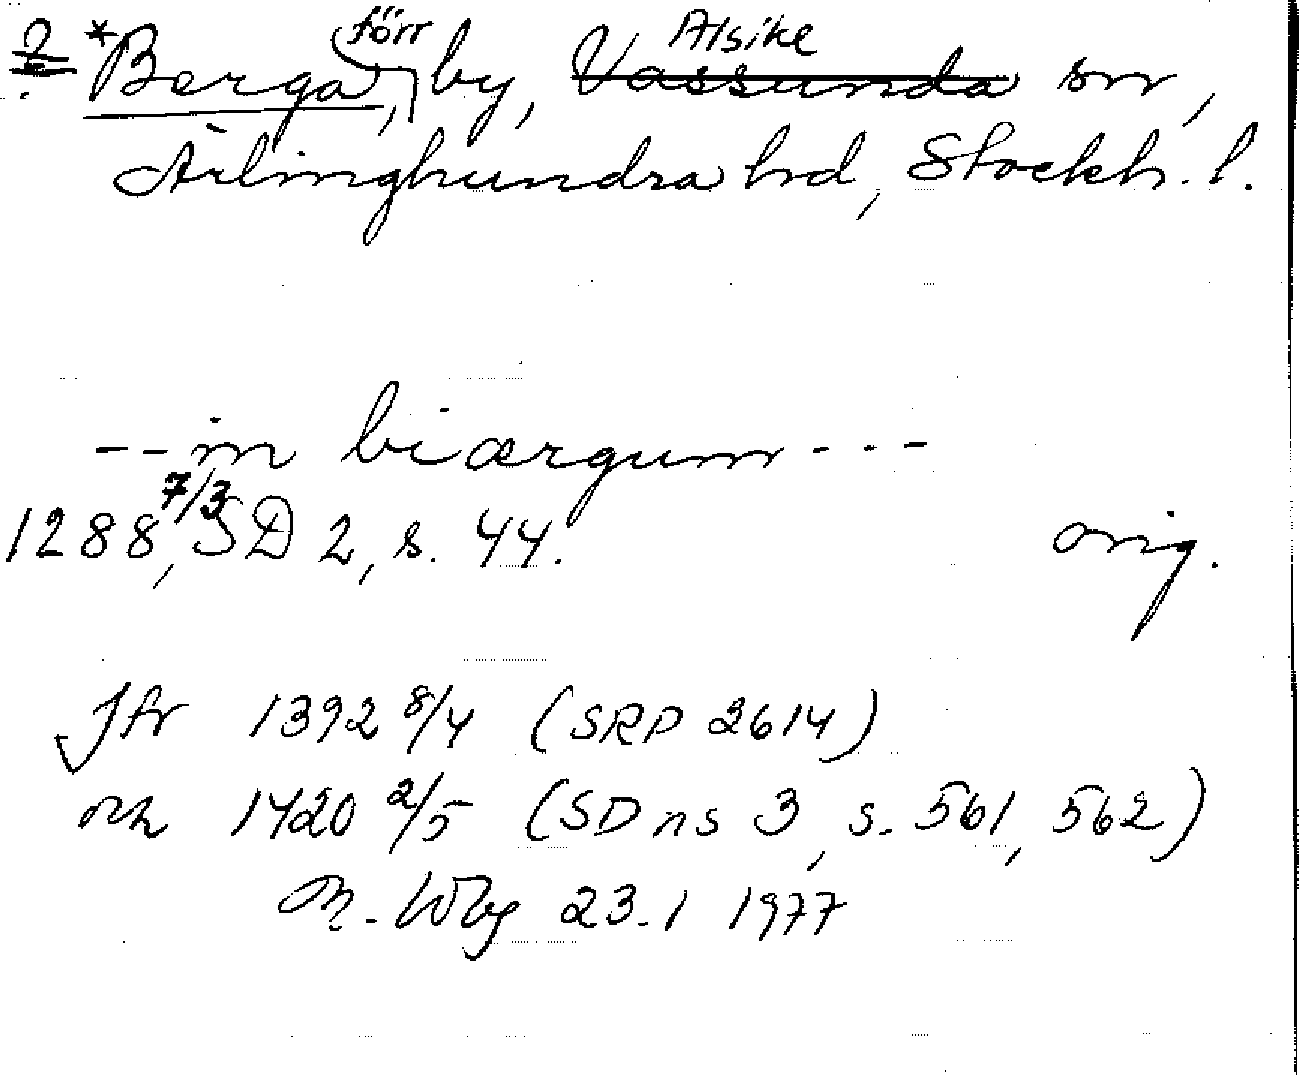 ? *Berga, förr by, Vassunda Alsike sn,
Ärlinghundra hd, Stockh. l.
-- in biærgum ---
1288 7/3, SD 2, s. 44. orig.
Jfr 1392 8/4 (SRP 2614)
och 1420 2/5 (SD ns 3, s. 561, 562)
M. Wbg 23.1 1977